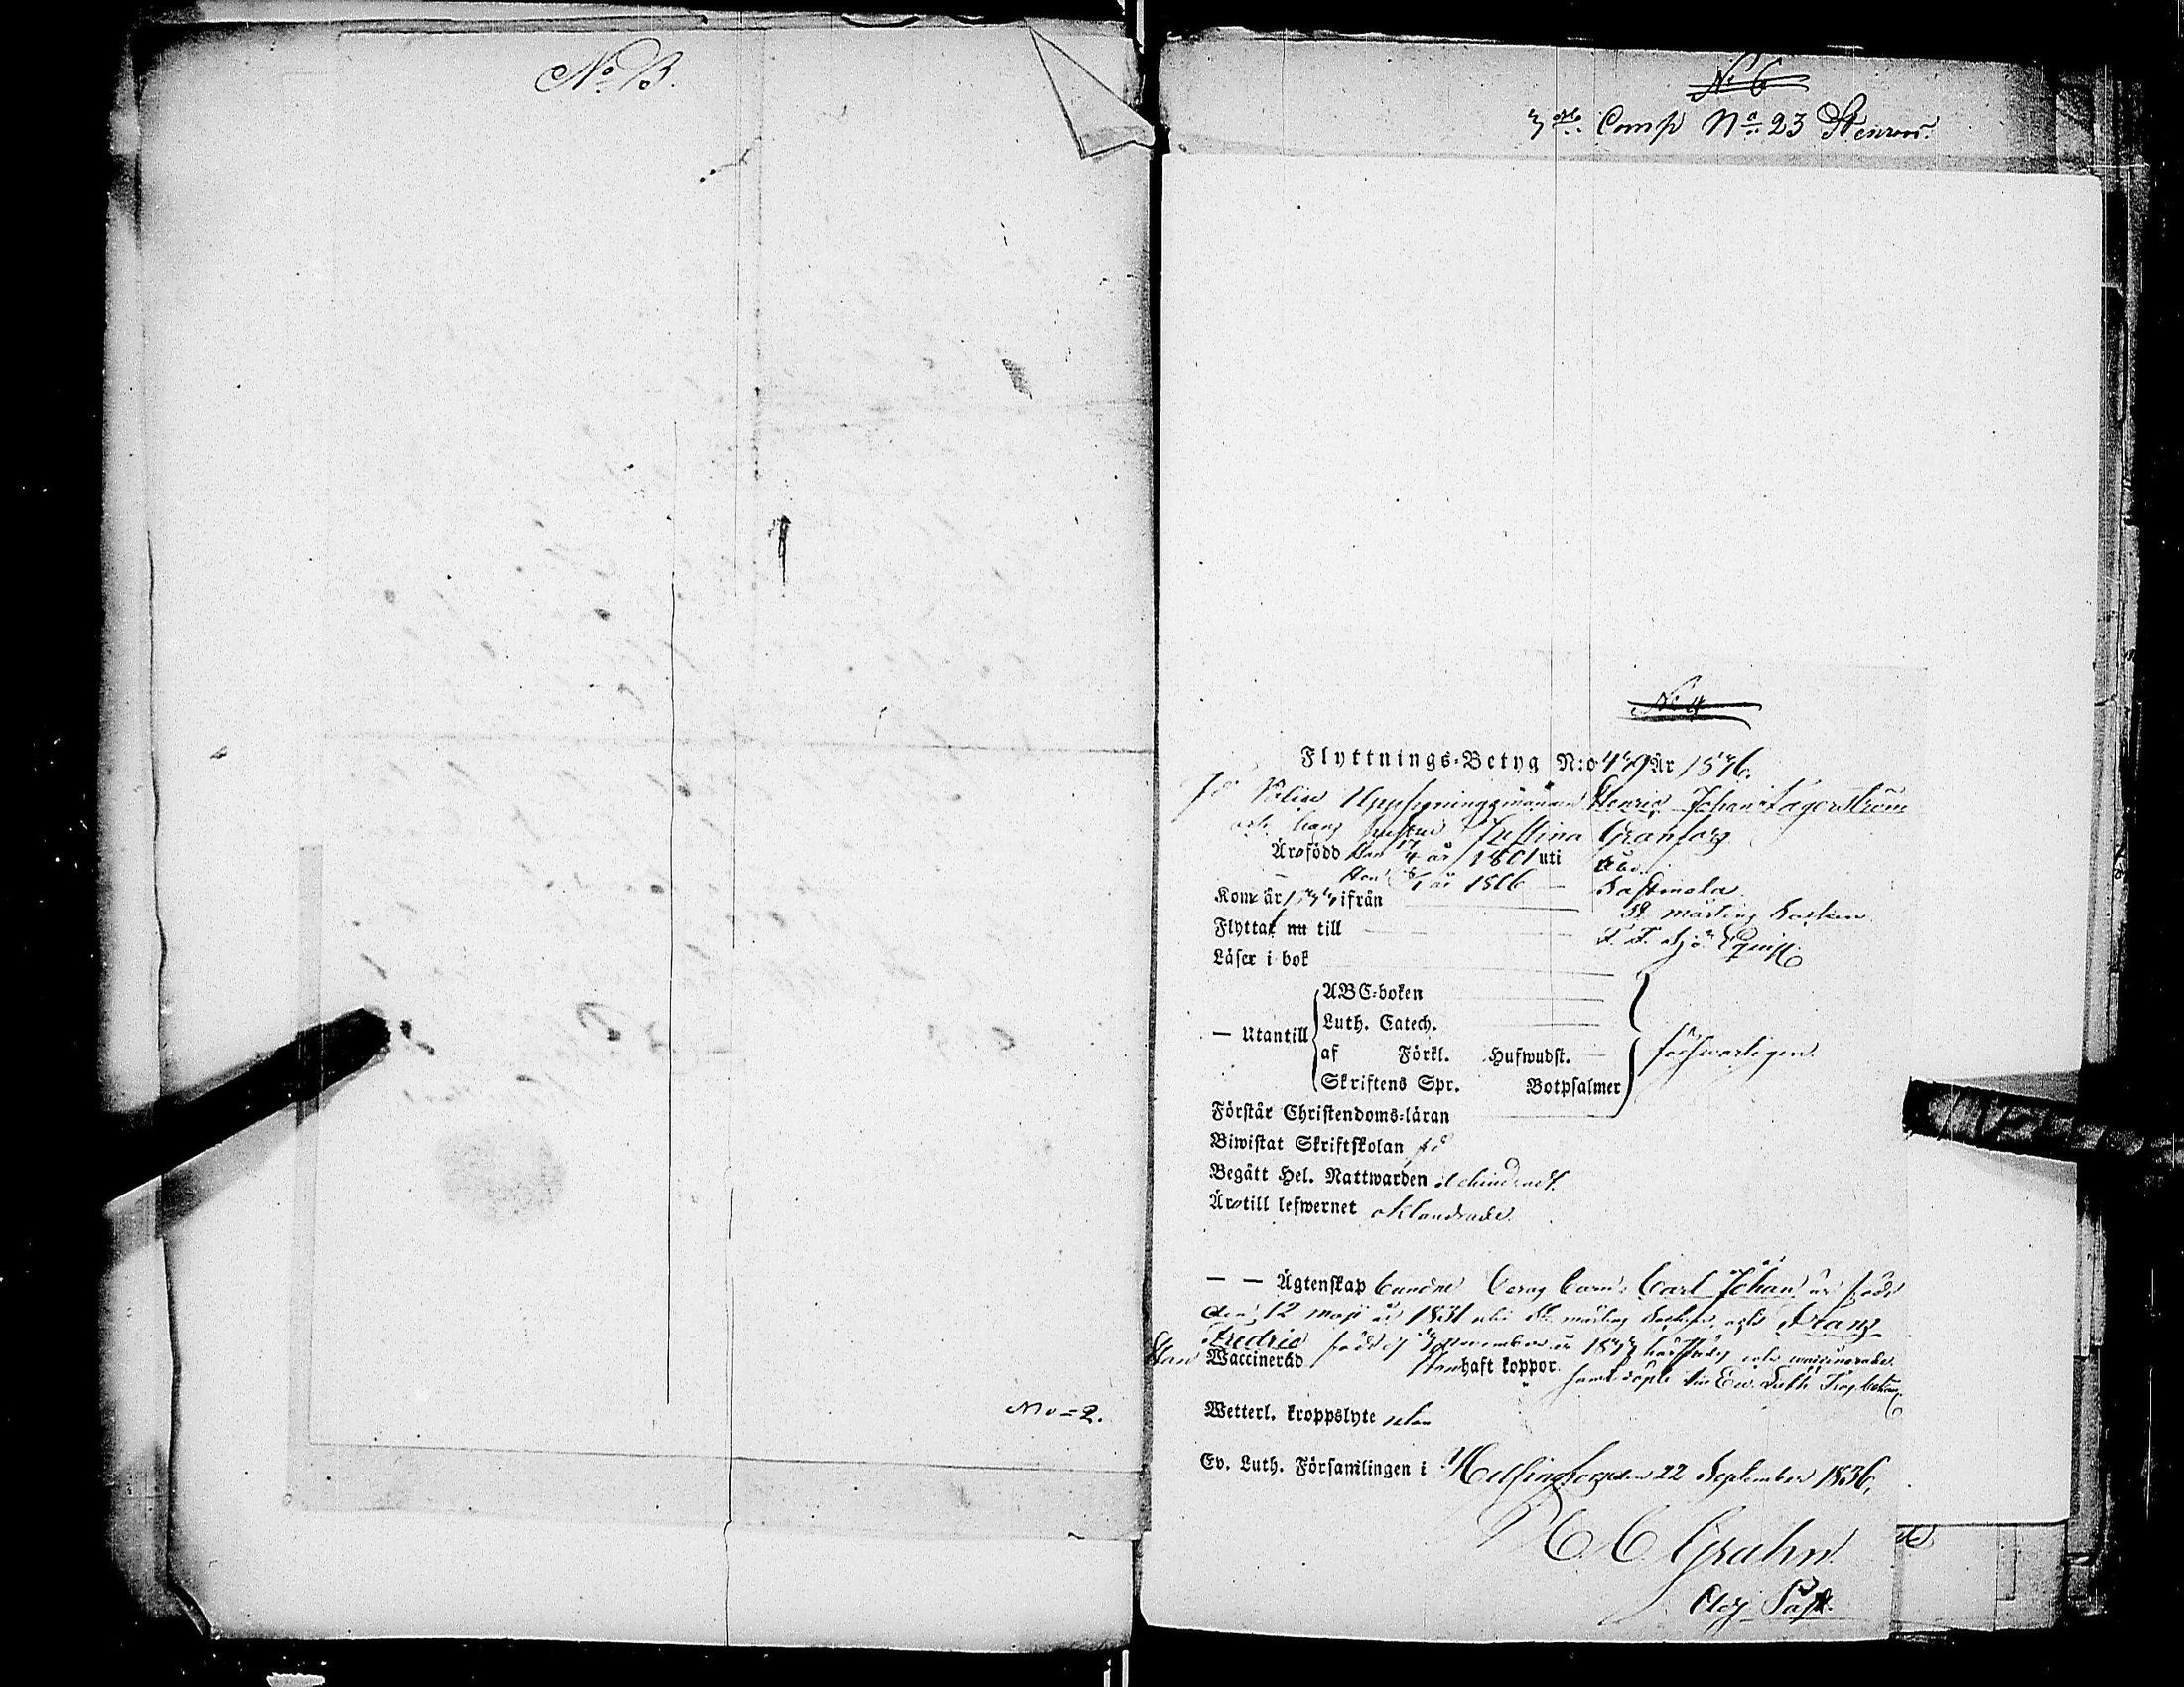 No 13.
No = 2.
No 6
3dje Comp No 23 Stenroos.
No 4
Flyttnings-Betyg N:o 449 År 1836.
för Polise Uppsyningsmannen Henric Johan Lagerström
och hans hustru Justina Granberg
Äro född Han 17/4 år 1801 uti Åbo.
— Hon år 1806 —
Kom år ifrån St mårtens Socken
Flyttat nu till Sjö Equip.
Läser i bok
— Utantill
ABC-boken
Luth. Catech.
af Förkl. Hufwudst.
Skriftens Spr. Botpsalmer
försvarligen.
Förstår Christendoms-läran
Biwistat Skriftskolan
Begått Hel. Nattwarden
Äro till lefwernet oklandrade.
— — Ägtenskap Deras barn: Carl Johan är född
den 12 maji år 1831 uti St mårtens Socken, och Franz
Fredric född november år härstädes och vaccinerade.
Han Waccinerad Hon haft koppor. samt döpte Ev. Luth.
Wetterl. kroppslyte utan
Ev. Luth. Församlingen i Helsingfors den 22 September 1836.
C. Grahn
Adj. Past.